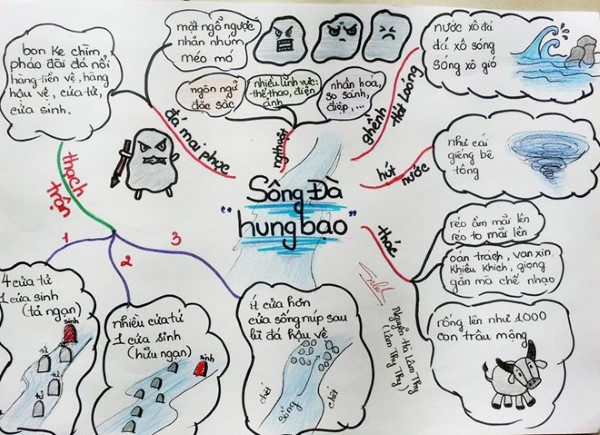 Sông Đà
"hung bạo"
bon ke chìm,
pháo đài đá nổi
hàng tiền vệ, hàng
hậu vệ, cửa tử,
cửa sinh.
thạch
trận
1
2
3
4 cửa tử
1 cửa sinh
(tả ngạn)
tử
tử
tử
tử
sinh
nhiều cửa tử
1 cửa sinh
(hữu ngạn)
sinh
ít cửa hơn
cửa sống núp sau
lũ đá hậu vệ
chết
sống
chết
đá mai phục
mặt ngỗ ngược
nhăn nhúm
méo mó
nghthuật
ngôn ngữ
đặc sắc
nhiều lĩnh vực:
thể thao, điện
ảnh
nhân hoá,
so sánh,
điệp,...
ghềnh
Hát Loóng
nước xô đá
đá xô sóng
sóng xô gió
hút
nước
như cái
giếng bê
tông
thác
réo ầm mãi lên
réo to mãi lên
oán trách, van xin
khiêu khích, giọng
gằn mà chế nhạo
rống lên như 1000
con trâu mộng
Nguyễn Hà Lâm Thy
(Lâm Thy Thy)